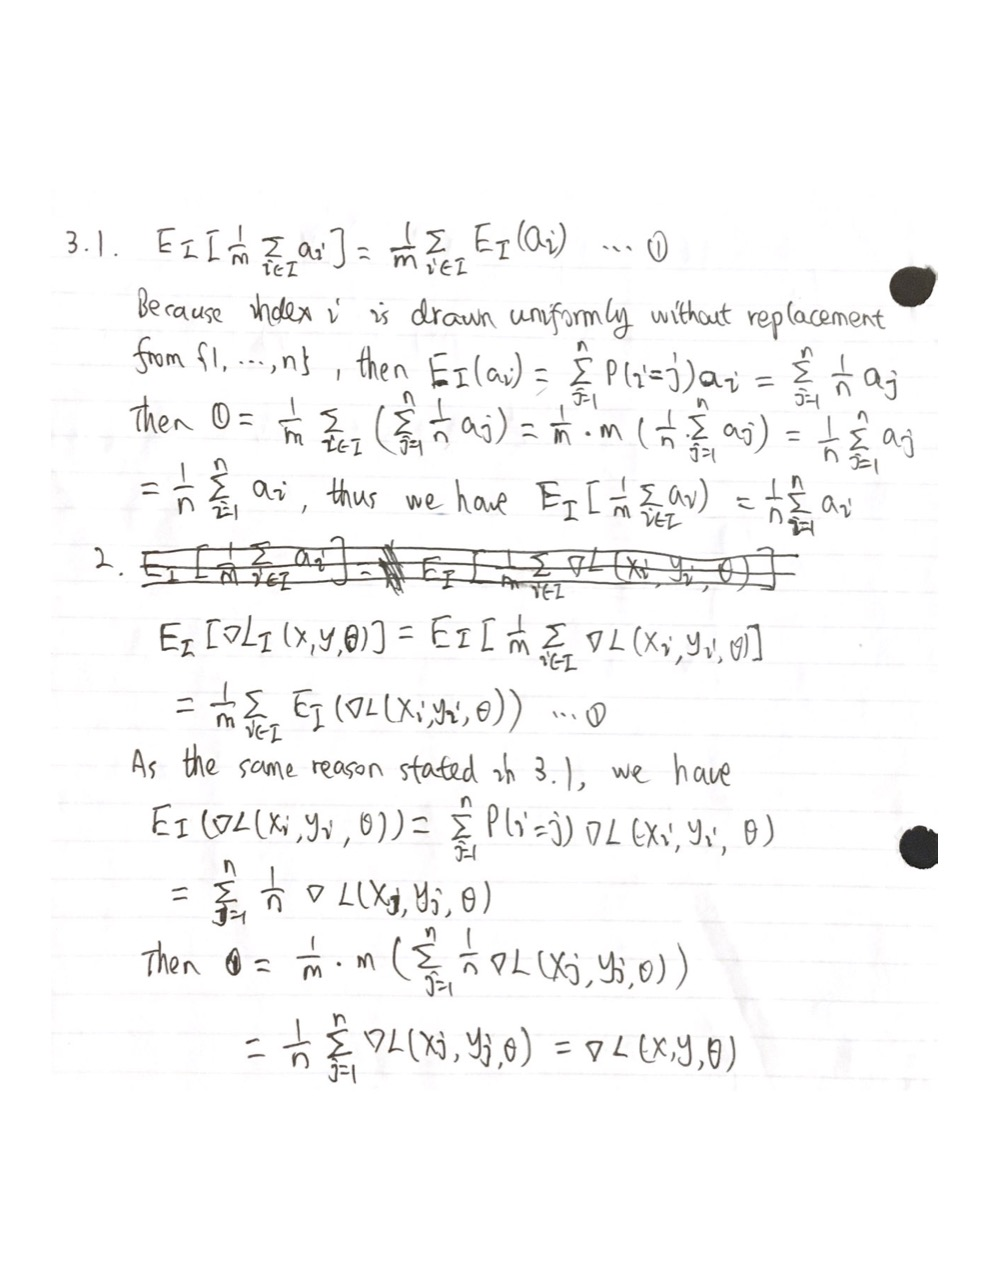 3.1. E_I [ 1/m Σ_{i∈I} a_i ] = 1/m Σ_{i∈I} E_I (a_i) ... ①
Because index i is drawn uniformly without replacement
from {1, ..., n} , then E_I(a_i) = Σ_{j=1}^{n} P(i=j) a_i = Σ_{j=1}^{n} 1/n a_j
Then ① = 1/m Σ_{i∈I} ( Σ_{j=1}^{n} 1/n a_j ) = 1/m · m ( 1/n · Σ_{j=1}^{n} a_j ) = 1/n Σ_{j=1}^{n} a_j
= 1/n Σ_{i=1}^{n} a_i , thus we have E_I [ 1/m Σ_{i∈I} a_i ) = 1/n Σ_{i=1}^{n} a_i
2. E_I [ 1/m Σ_{i∈I} a_i ] = E_I [ 1/m Σ_{i∈I} ∇L (x_i, y_i, θ) ]
E_I [∇L_I (x,y,θ)] = E_I [ 1/m Σ_{i∈I} ∇L (x_i, y_i, θ) ]
= 1/m Σ_{i∈I} E_I (∇L(x_i, y_i, θ)) ... ①
As the same reason stated in 3.1, we have
E_I (∇L(x_i, y_i, θ)) = Σ_{j=1}^{n} P(i=j) ∇L (x_i, y_i, θ)
= Σ_{j=1}^{n} 1/n ∇ L(x_j, y_j, θ)
Then ① = 1/m · m ( Σ_{j=1}^{n} 1/n ∇L (x_j, y_j, θ) )
= 1/n Σ_{j=1}^{n} ∇L(x_j, y_j, θ) = ∇L (x,y,θ)